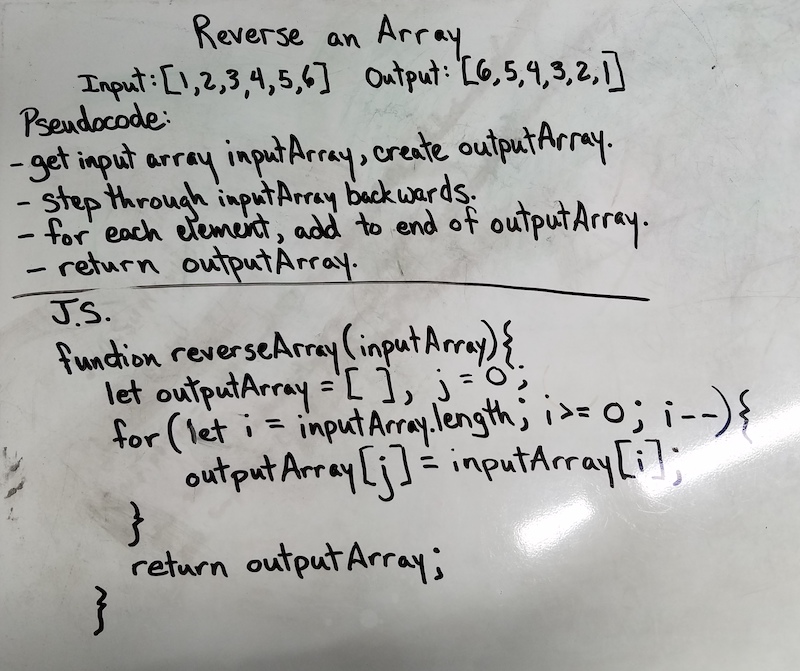 Reverse an Array
Input: [1,2,3,4,5,6] Output: [6,5,4,3,2,1]
Pseudocode:
- get input array inputArray, create outputArray.
- step through inputArray backwards.
- for each element, add to end of outputArray.
- return outputArray.
J.S.
function reverseArray(inputArray){
let outputArray = [ ], j = 0;
for(let i = inputArray.length; i >= 0; i--){
outputArray[j] = inputArray[i];
}
return outputArray;
}